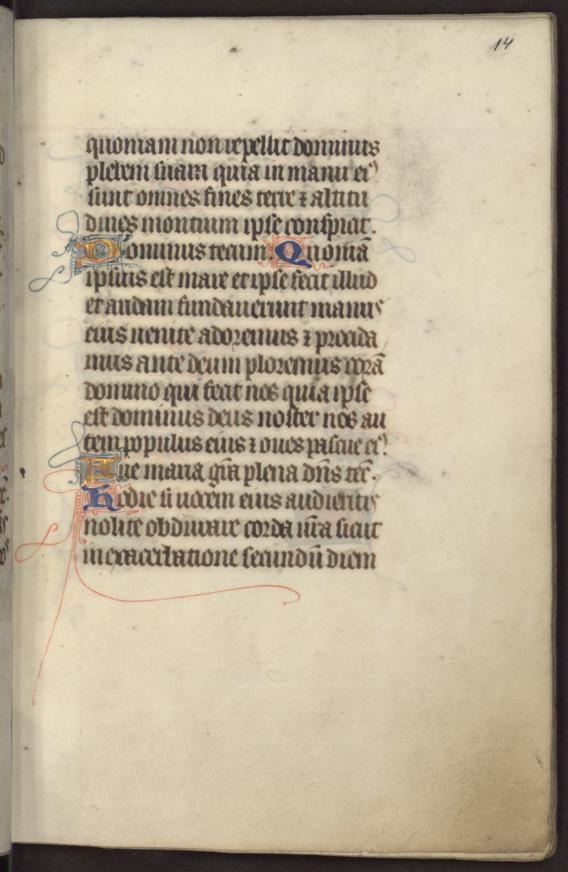 14
quoniam non repellit dominus
plebem suam quia in manu ei᾽
sunt omnes fines terre ⁊ altitu
dines montium ipse conspicit.
Dominus tecum. Quoniā
ipsius est mare et ipse fecit illud
et aridam fundauerunt manus
eius uenite adoremus ⁊ procida
mus ante deum ploremus corā
domino qui fecit nos quia ipse
est dominus deus noster nos au
tem populus eius ⁊ oues pascue ei᾽.
Aue maria grā plena dn̄s tec̄.
Hodie si uocem eius audieritis
nolite obdurare corda ur̄a sicut
in exacerbatione secundū diem